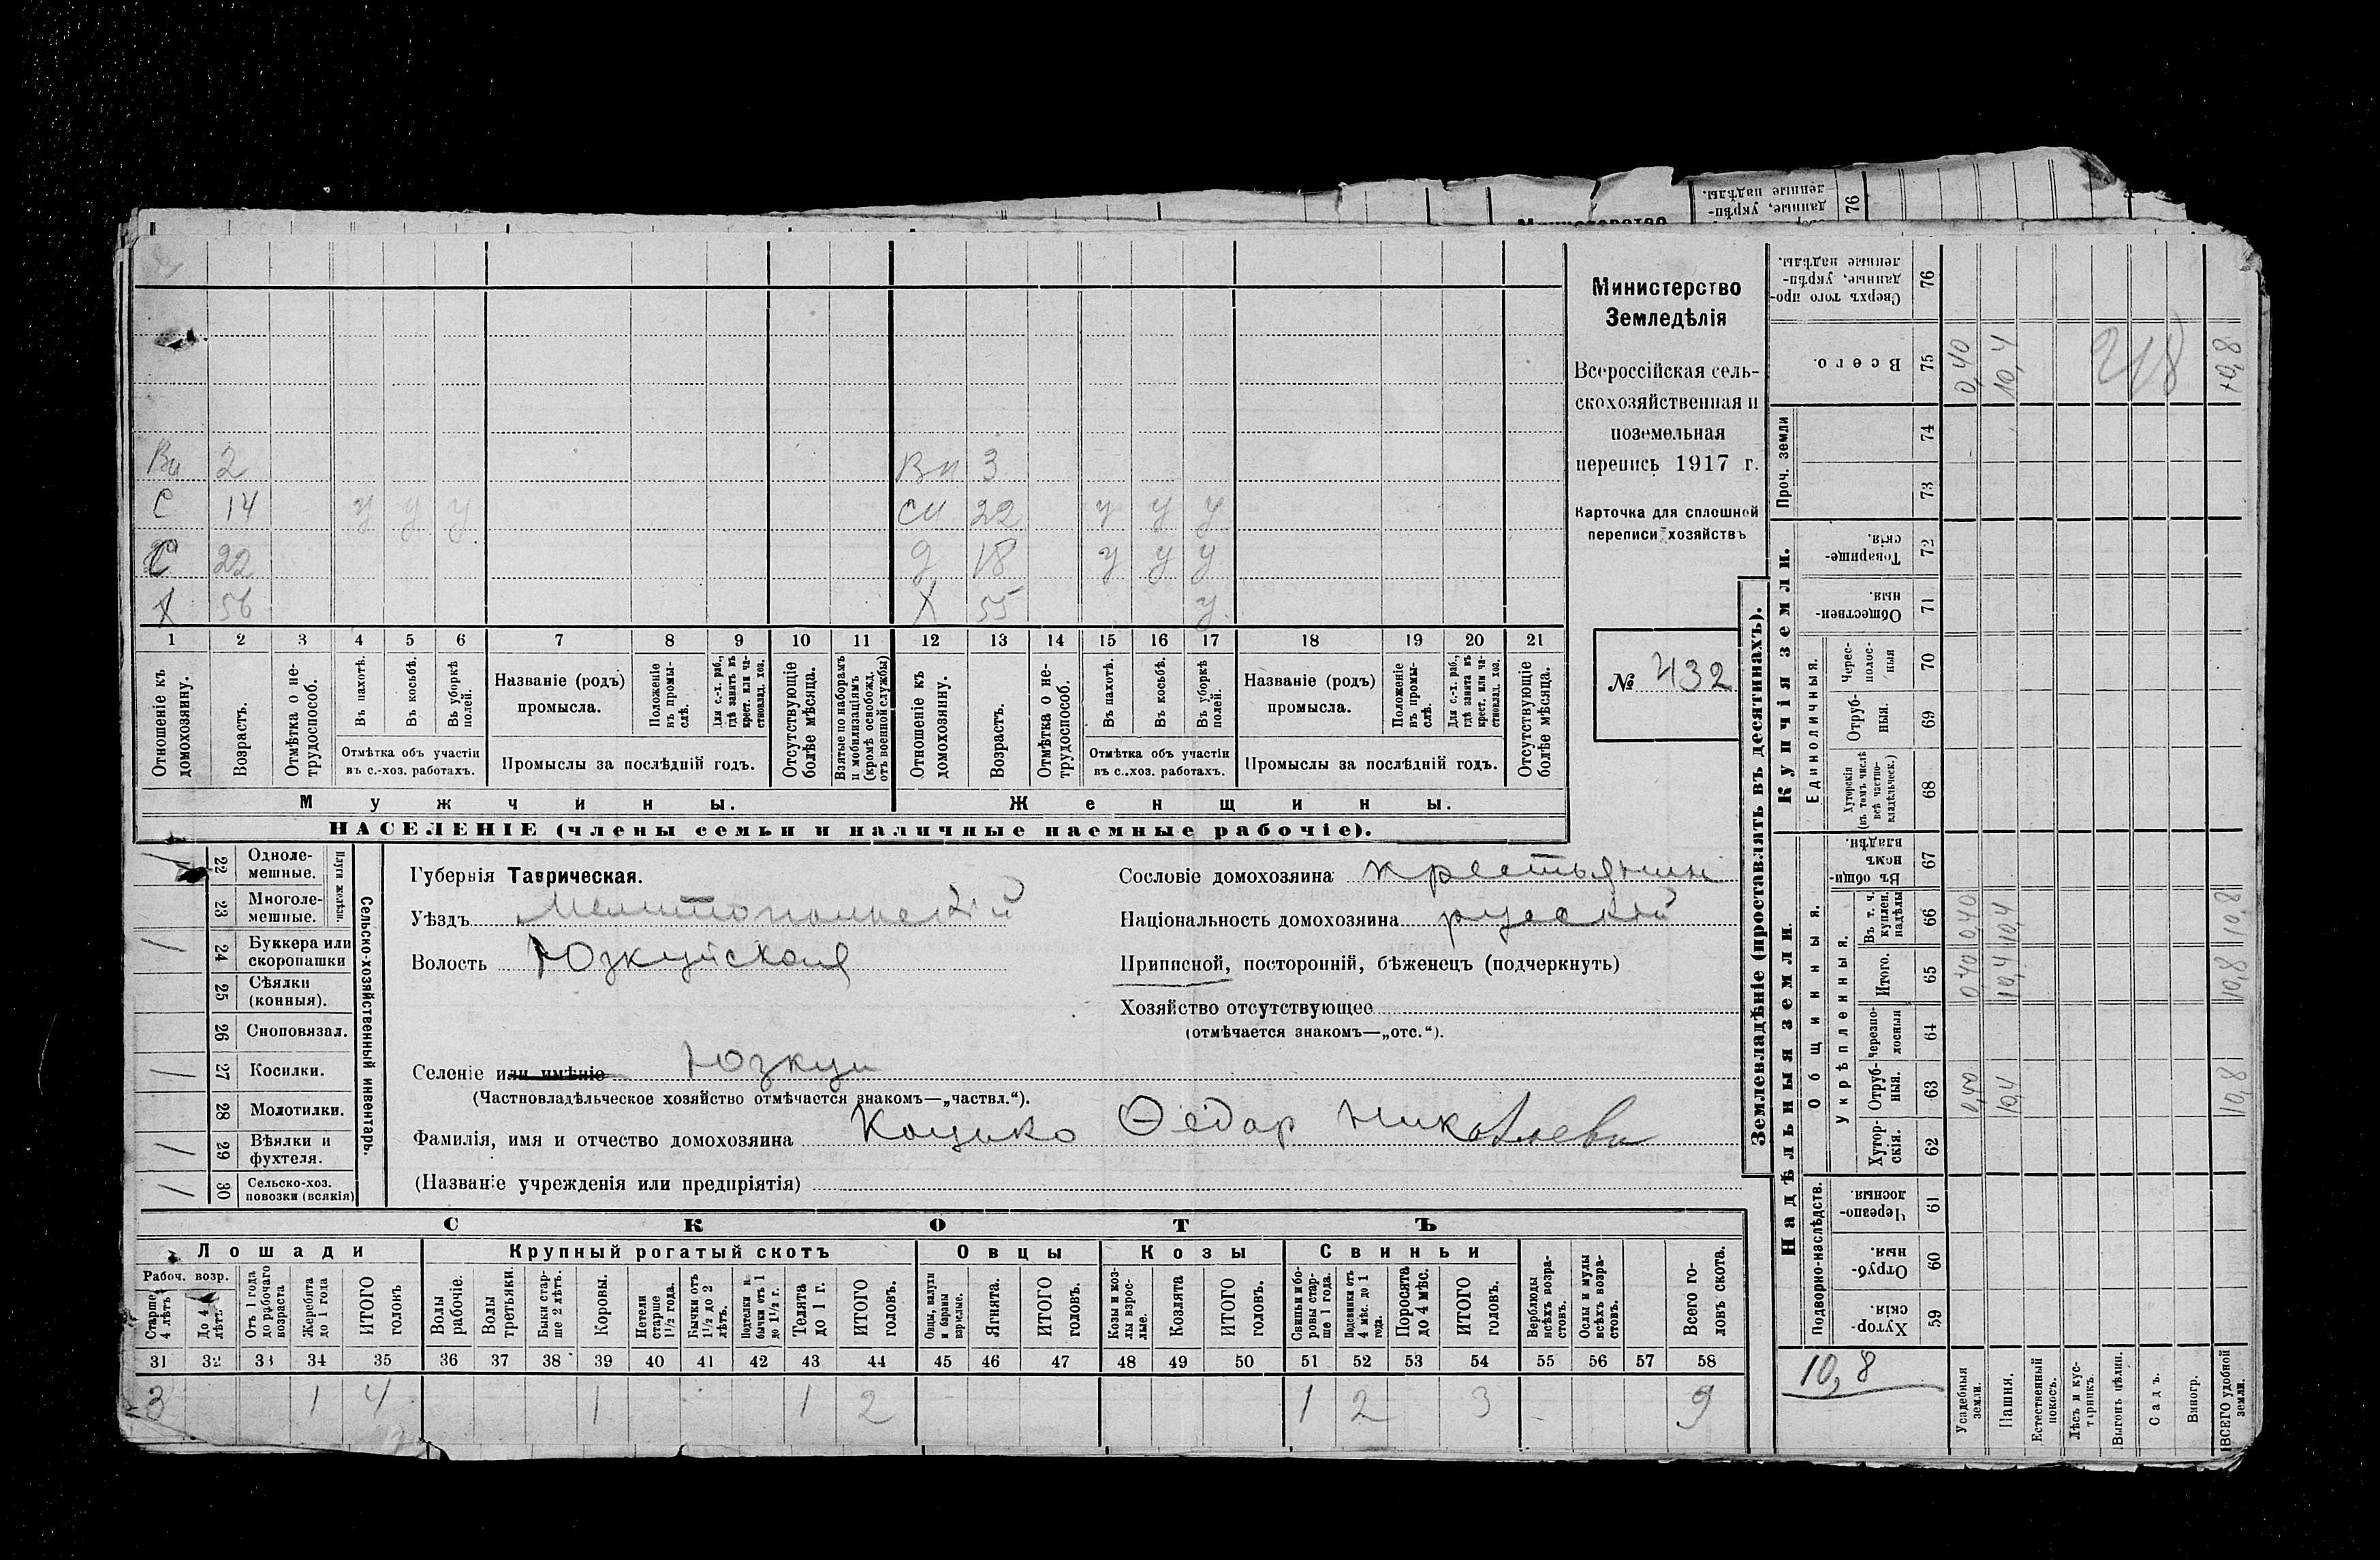 76
Министерство
Земледѣлія
Всероссійская сель-
скохозяйственная и
поземельная
перепись 1917 г.
Карточка для сплошной
переписи хозяйствъ
№ 432
Вн 2 Вн 3
С 14 у у у сн 22 у у у
С 22 д 18 у у у
Х 56 Х 55 у
1 2 3 4 5 6 7 8 9 10 11 12 13 14 15 16 17 18 19 20 21
Отношеніе къ домохозяину.
Возрастъ.
Отмѣтка о не-трудоспособ.
Въ пахотѣ.
Въ косьбѣ.
Въ уборкѣ полей.
Отмѣтка объ участіи
въ с.-хоз. работахъ.
Названіе (родъ)
промысла.
Положеніе въ промы-слѣ.
Для с.-х. раб., гдѣ занятъ въ крест. или ча-стновлад. хоз.
Промыслы за послѣдній годъ.
Отсутствующіе болѣе мѣсяца.
Взятые по наборамъ и мобилизаціямъ (кромѣ освобожд. отъ военной службы)
Отношеніе къ домохозяину.
Возрастъ.
Отмѣтка о не-трудоспособ.
Въ пахотѣ.
Въ косьбѣ.
Въ уборкѣ полей.
Отмѣтка объ участіи
въ с.-хоз. работахъ.
Названіе (родъ)
промысла.
Положеніе въ промы-слѣ.
Для с.-х. раб., гдѣ занята въ крест. или ча-стновлад. хоз.
Промыслы за послѣдній годъ.
Отсутствующіе болѣе мѣсяца.
Мужчины. Женщины.
НАСЕЛЕНІЕ (члены семьи и наличные наемные рабочіе).
22 Одноле-мешные.
23 Многоле-мешные.
Плуги желѣзн.
/ 24 Буккера или скоропашки
25 Сѣялки (конныя).
26 Сноповязал.
/ 27 Косилки.
28 Молотилки.
/ 29 Вѣялки и фухтеля.
/ 30 Сельско-хоз. повозки (всякія)
Сельско-хозяйственный инвентарь.
Губернія Таврическая.
Уѣздъ Мелитопольскій
Волость Юзкуйская
Селеніе или имѣніе Юзкуи
(Частновладѣльческое хозяйство отмѣчается знакомъ—„частвл.“).
Сословіе домохозяина крестьянин
Національность домохозяина русскій
Приписной, посторонній, бѣженецъ (подчеркнуть)
Хозяйство отсутствующее
(отмѣчается знакомъ—„отс.“).
Фамилія, имя и отчество домохозяина Коцько Ѳедар Николаеви
(Названіе учрежденія или предпріятія)
СКОТЪ
Лошади Крупный рогатый скотъ Овцы Козы Свиньи
Рабоч. возр.
Старше 4 лѣтъ
До 4 лѣтъ
Отъ 1 года до рабочаго возраста
Жеребята до 1 года
ИТОГО головъ
Волы рабочіе.
Волы третьяки.
Быки стар-ше 2 лѣтъ.
Коровы.
Нетели старше 1½ года.
Бычки отъ 1½ до 2 лѣтъ.
Подтелки и бычки отъ 1 до 1½ г.
Телята до 1 г.
ИТОГО головъ.
Овцы, валухи и бараны взрослые.
Ягнята.
ИТОГО головъ.
Козы и коз-лы взрос-лые.
Козлята
ИТОГО головъ.
Свиньи и бо-ровы стар-ше 1 года.
Подсвинки отъ 4 мѣс. до 1 года.
Поросята до 4 мѣс.
ИТОГО головъ.
Верблюды всѣхъ возра-стовъ.
Ослы и мулы всѣхъ возра-стовъ.
Всего го-ловъ скота.
31 32 33 34 35 36 37 38 39 40 41 42 43 44 45 46 47 48 49 50 51 52 53 54 55 56 57 58
3 1 4 1 1 2 1 2 3 9
Землевладѣніе (проставлять въ десятинахъ).
Сверхъ того про-данные, укрѣп-ленные надѣлы. 76
Всего. 75 0,40 10,4 10,8
218
Проч. земли 74 73
Купчія земли.
Товарище-скія. 72
Обществен-ныя. 71
Единоличныя.
Черес-полос-ныя 70
Отруб-ныя. 69
Хуторскія (въ томъ числѣ всѣ частно-владѣльческ.) 68
Надѣльныя земли.
Общинныя.
Въ общи-номъ владѣн. 67
Укрѣпленныя.
Въ т. ч. куплен. надѣлы 66 0,40 10,4 10,8
Итого. 65 0,40 10,4 10,8
Черезпо-лосныя 64
Отруб-ныя. 63 0,40 10,4 10,8
Хутор-скія. 62
Подворно-наслѣдств.
Черезпо-лосныя. 61
Отруб-ныя. 60
Хутор-скія. 59
10,8
Усадебныя земли.
Пашня.
Естественный покосъ.
Лѣсъ и кус-тарникъ.
Выгонъ цѣлин.
Садъ.
Виногр.
ВСЕГО удобной земли.